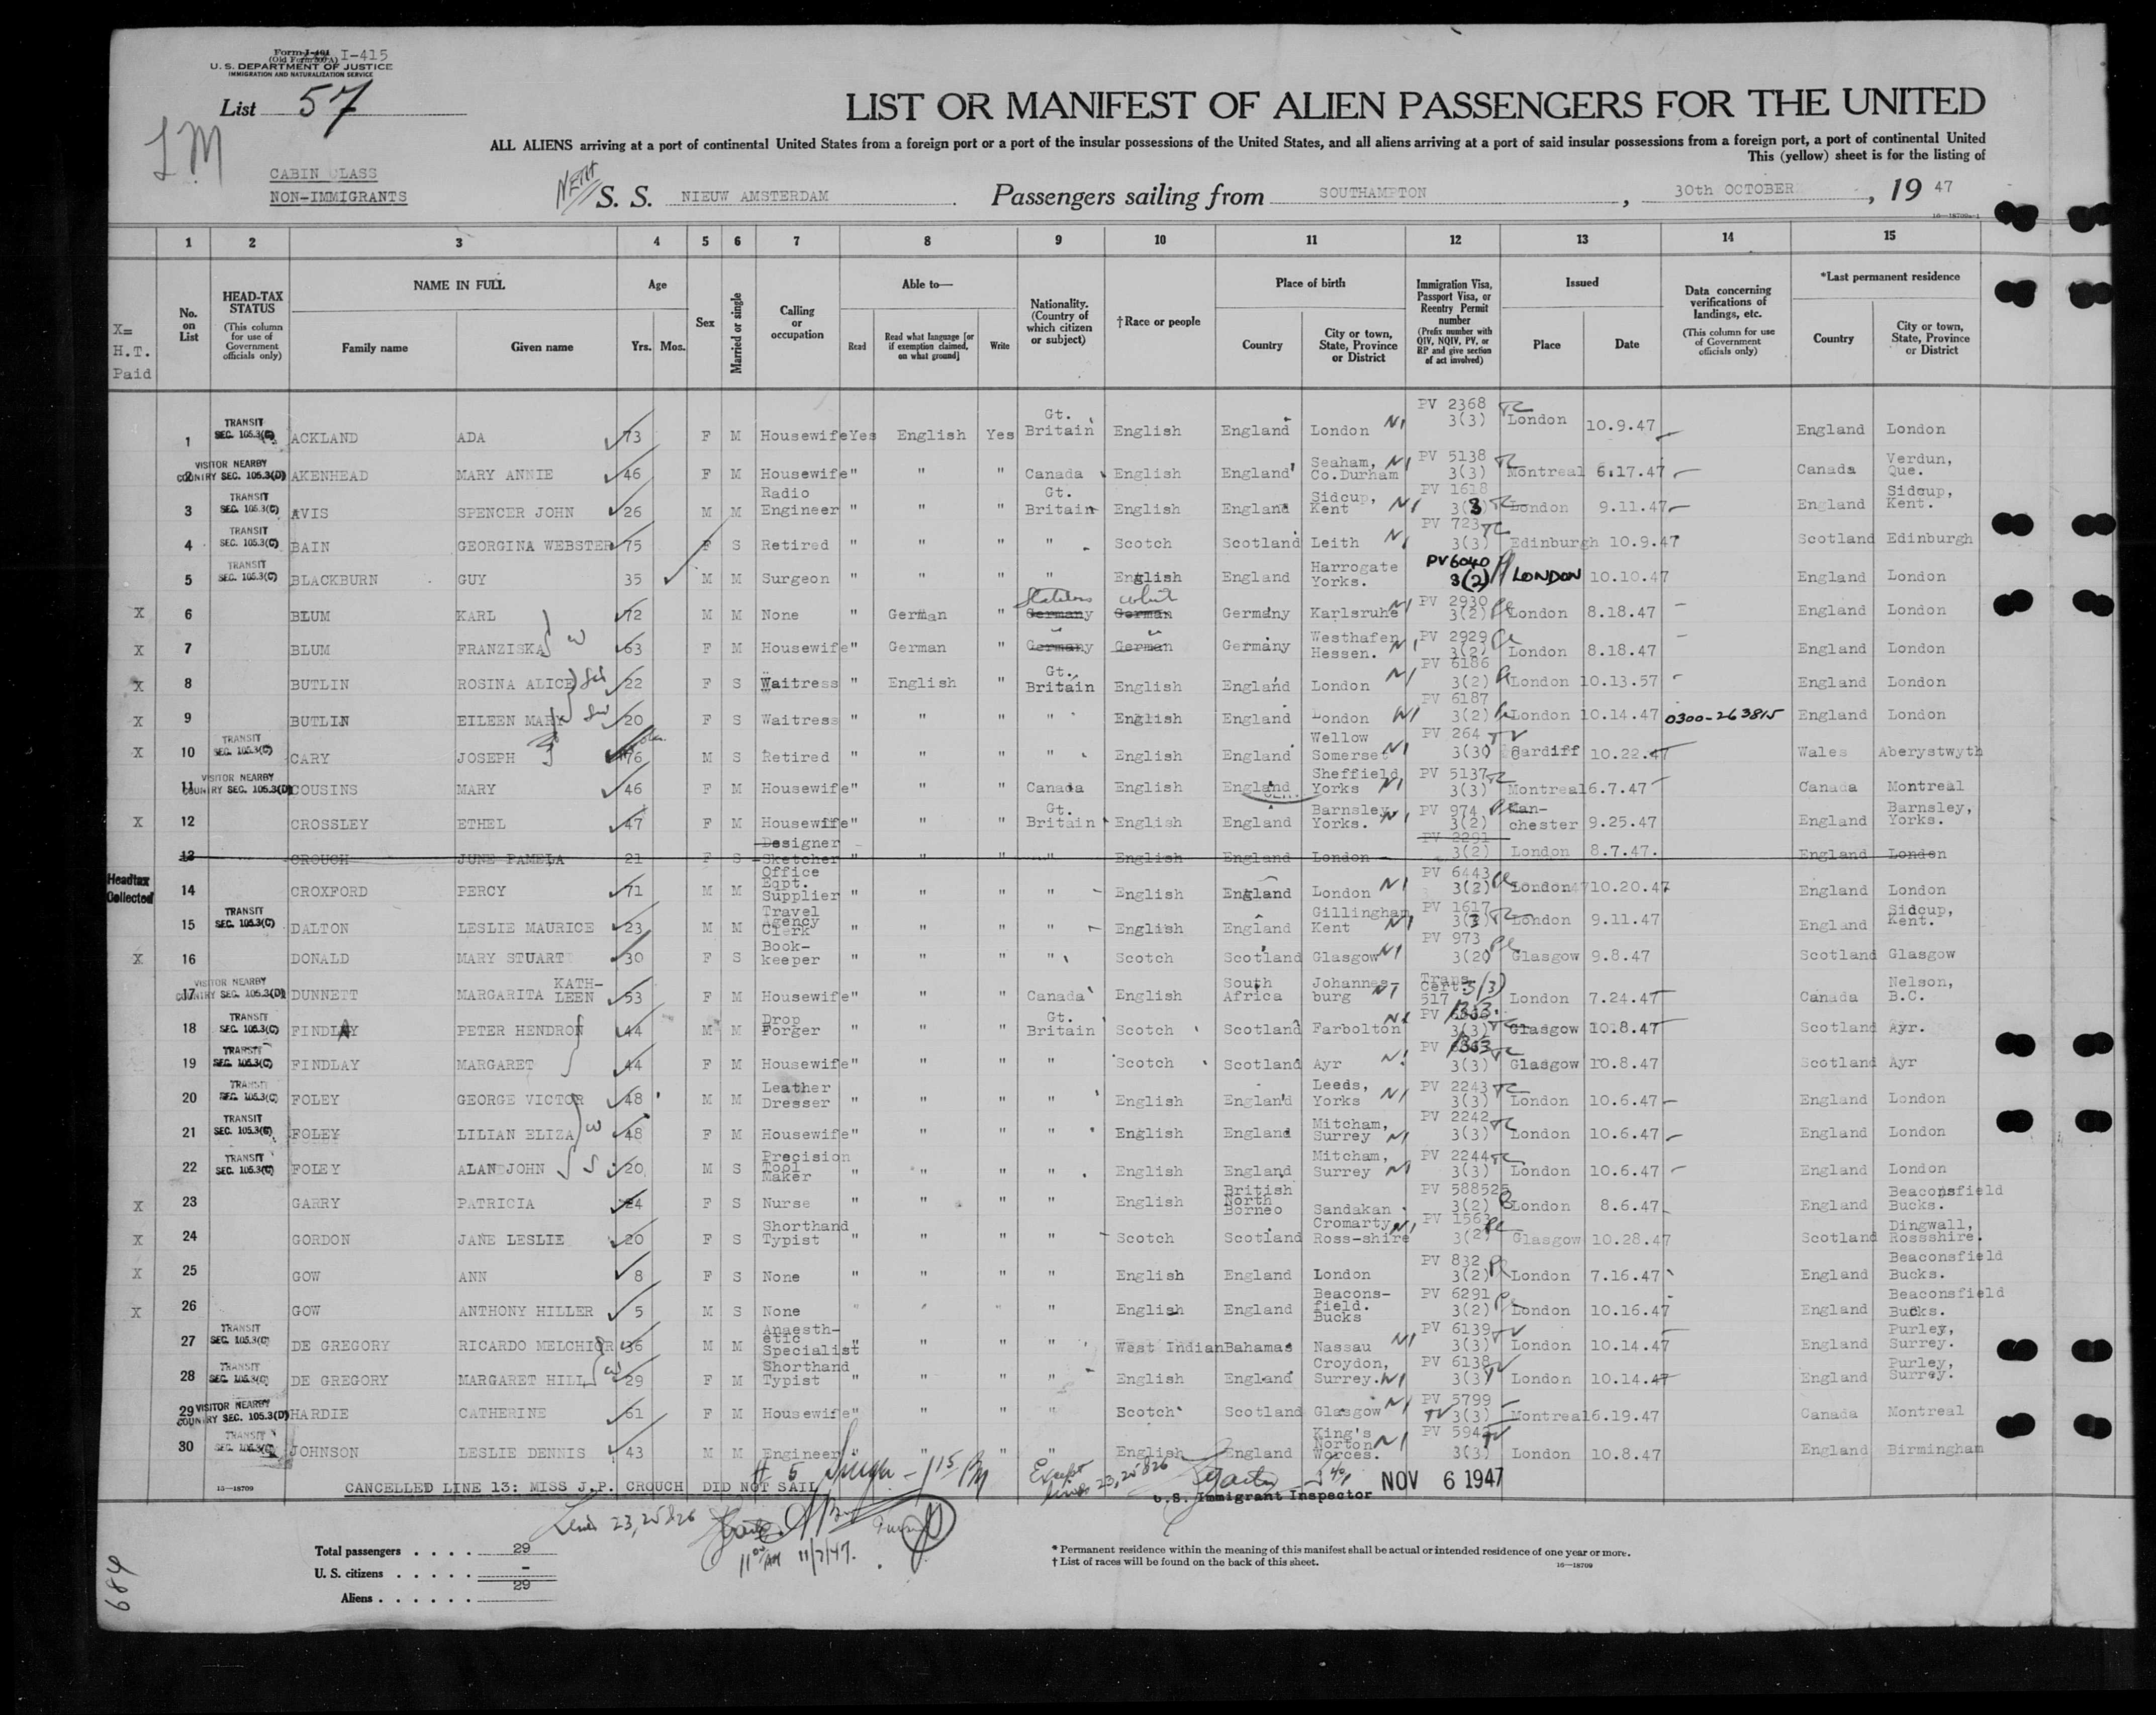 Form I-461 I-415
(Old Form 500 A)
U. S. DEPARTMENT OF JUSTICE
IMMIGRATION AND NATURALIZATION SERVICE
List 57
LIST OR MANIFEST OF ALIEN PASSENGERS FOR THE UNITED
ALL ALIENS arriving at a port of continental United States from a foreign port or a port of the insular possessions of the United States, and all aliens arriving at a port of said insular possessions from a foreign port, a port of continental United
This (yellow) sheet is for the listing of
CABIN CLASS
NON-IMMIGRANTS
NETH S. S. NIEUW AMSTERDAM. Passengers sailing from SOUTHAMPTON, 30th OCTOBER, 19 47
16—18709a-1
1 2 3 4 5 6 7 8 9 10 11 12 13 14 15
X= H.T. Paid
No. on List
HEAD-TAX STATUS (This column for use of Government officials only)
NAME IN FULL Family name Given name
Age Yrs. Mos.
Sex
Married or single
Calling or occupation
Able to— Read Read what language [or if exemption claimed, on what ground] Write
Nationality. (Country of which citizen or subject)
†Race or people
Place of birth Country City or town, State, Province or District
Immigration Visa, Passport Visa, or Reentry Permit number (Prefix number with QIV, NQIV, PV, or RP and give section of act involved)
Issued Place Date
Data concerning verifications of landings, etc. (This column for use of Government officials only)
*Last permanent residence Country City or town, State, Province or District
1 TRANSIT SEC. 105.3(C) ACKLAND ADA 73 F M Housewife Yes English Yes Gt. Britain English England London PV 2368 3(3) London 10.9.47 England London
2 VISITOR NEARBY COUNTRY SEC. 105.3(D) AKENHEAD MARY ANNIE 46 F M Housewife " " " Canada English England Seaham, Co.Durham PV 5138 3(3) Montreal 6.17.47 Canada Verdun, Que.
3 TRANSIT SEC. 105.3(C) AVIS SPENCER JOHN 26 M M Radio Engineer " " " Gt. Britain English England Sidcup, Kent PV 1618 3(3) London 9.11.47 England Sidcup, Kent.
4 TRANSIT SEC. 105.3(C) BAIN GEORGINA WEBSTER 75 F S Retired " " " " Scotch Scotland Leith PV 723 3(3) Edinburgh 10.9.47 Scotland Edinburgh
5 TRANSIT SEC. 105.3(C) BLACKBURN GUY 35 M M Surgeon " " " " English England Harrogate Yorks. PV6040 3(2) LONDON 10.10.47 England London
X 6 BLUM KARL 72 M M None " German " Germany Stateless German white Germany Karlsruhe PV 2930 3(2) London 8.18.47 England London
X 7 BLUM FRANZISKA 63 F M Housewife " German " Germany " German " Germany Westhafen Hessen. PV 2929 3(2) London 8.18.47 England London
X 8 BUTLIN ROSINA ALICE 22 F S Waitress " English " Gt. Britain English England London PV 6186 3(2) London 10.13.57 England London
X 9 BUTLIN EILEEN MARY 20 F S Waitress " " " " English England London PV 6187 3(2) London 10.14.47 0300-263815 England London
X 10 TRANSIT SEC. 105.3(C) CARY JOSEPH 76 M S Retired " " " " English England Wellow Somerset PV 264 3(30 Cardiff 10.22.47 Wales Aberystwyth
11 VISITOR NEARBY COUNTRY SEC. 105.3(D) COUSINS MARY 46 F M Housewife " " " Canada English England Sheffield Yorks PV 5137 3(3) Montreal 6.7.47 Canada Montreal
X 12 CROSSLEY ETHEL 47 F M Housewife " " " Gt. Britain English England Barnsley, Yorks. PV 974 3(2) Man-chester 9.25.47 England Barnsley, Yorks.
13 CROUCH JUNE PAMELA 21 F S Designer Sketcher " " " " English England London PV 2291 3(2) London 8.7.47. England London
Headtax Collected 14 CROXFORD PERCY 71 M M Office Eqpt. Supplier " " " " English England London PV 6443 3(2) London 10.20.47 England London
15 TRANSIT SEC. 105.3(C) DALTON LESLIE MAURICE 23 M M Travel Agency Clerk " " " " English England Gillingham Kent PV 1617 3(3) London 9.11.47 England Sidcup, Kent.
X 16 DONALD MARY STUART 30 F S Book-keeper " " " " Scotch Scotland Glasgow PV 973 3(20 Glasgow 9.8.47 Scotland Glasgow
17 VISITOR NEARBY COUNTRY SEC. 105.3(D) DUNNETT MARGARITA KATH-LEEN 53 F M Housewife " " " Canada English South Africa Johannes-burg Trans Cert 517 3(3) London 7.24.47 Canada Nelson, B.C.
18 TRANSIT SEC. 105.3(C) FINDLAY PETER HENDRON 44 M M Drop Forger " " " Gt. Britain Scotch Scotland Farbolton PV 3(3) Glasgow 10.8.47 Scotland Ayr.
19 TRANSIT SEC. 105.3(C) FINDLAY MARGARET 44 F M Housewife " " " " Scotch Scotland Ayr PV 3(3) Glasgow 10.8.47 Scotland Ayr
20 TRANSIT SEC. 105.3(C) FOLEY GEORGE VICTOR 48 M M Leather Dresser " " " " English England Leeds, Yorks PV 2243 3(3) London 10.6.47 England London
21 TRANSIT SEC. 105.3(C) FOLEY LILIAN ELIZA 48 F M Housewife " " " " English England Mitcham, Surrey PV 2242 3(3) London 10.6.47 England London
22 TRANSIT SEC. 105.3(C) FOLEY ALAN JOHN 20 M S Precision Tool Maker " " " " English England Mitcham, Surrey PV 2244 3(3) London 10.6.47 England London
X 23 GARRY PATRICIA 24 F S Nurse " " " " English British North Borneo Sandakan PV 588525 3(2) London 8.6.47 England Beaconsfield Bucks.
X 24 GORDON JANE LESLIE 20 F S Shorthand Typist " " " " Scotch Scotland Cromarty, Ross-shire PV 1563 3(2) Glasgow 10.28.47 Scotland Dingwall, Rossshire.
X 25 GOW ANN 8 F S None " " " " English England London PV 832 3(2) London 7.16.47 England Beaconsfield Bucks.
X 26 GOW ANTHONY HILLER 5 M S None " " " " English England Beacons-field. Bucks PV 6291 3(2) London 10.16.47 England Beaconsfield Bucks.
27 TRANSIT SEC. 105.3(C) DE GREGORY RICARDO MELCHIOR 36 M M Anaesth-etic Specialist " " " " West Indian Bahamas Nassau PV 6139 3(3) London 10.14.47 England Purley, Surrey.
28 TRANSIT SEC. 105.3(C) DE GREGORY MARGARET HILL 29 F M Shorthand Typist " " " " English England Croydon, Surrey. PV 6138 3(3) London 10.14.47 England Purley, Surrey.
29 VISITOR NEARBY COUNTRY SEC. 105.3(D) HARDIE CATHERINE 61 F M Housewife " " " " Scotch Scotland Glasgow PV 5799 3(3) Montreal 6.19.47 Canada Montreal
30 TRANSIT SEC. 105.3(C) JOHNSON LESLIE DENNIS 43 M M Engineer " " " " English England King's Norton Worces. PV 5942 3(3) London 10.8.47 England Birmingham
16—18709
CANCELLED LINE 13: MISS J.P. CROUCH DID NOT SAIL
Except lines 23, 25 & 26
U.S. Immigrant Inspector NOV 6 1947
Lines 23, 25 & 26
11 00 AM 11/7/47.
Total passengers . . . . 29
U. S. citizens . . . . . –
Aliens . . . . . . 29
* Permanent residence within the meaning of this manifest shall be actual or intended residence of one year or more.
† List of races will be found on the back of this sheet.
16—18709
684